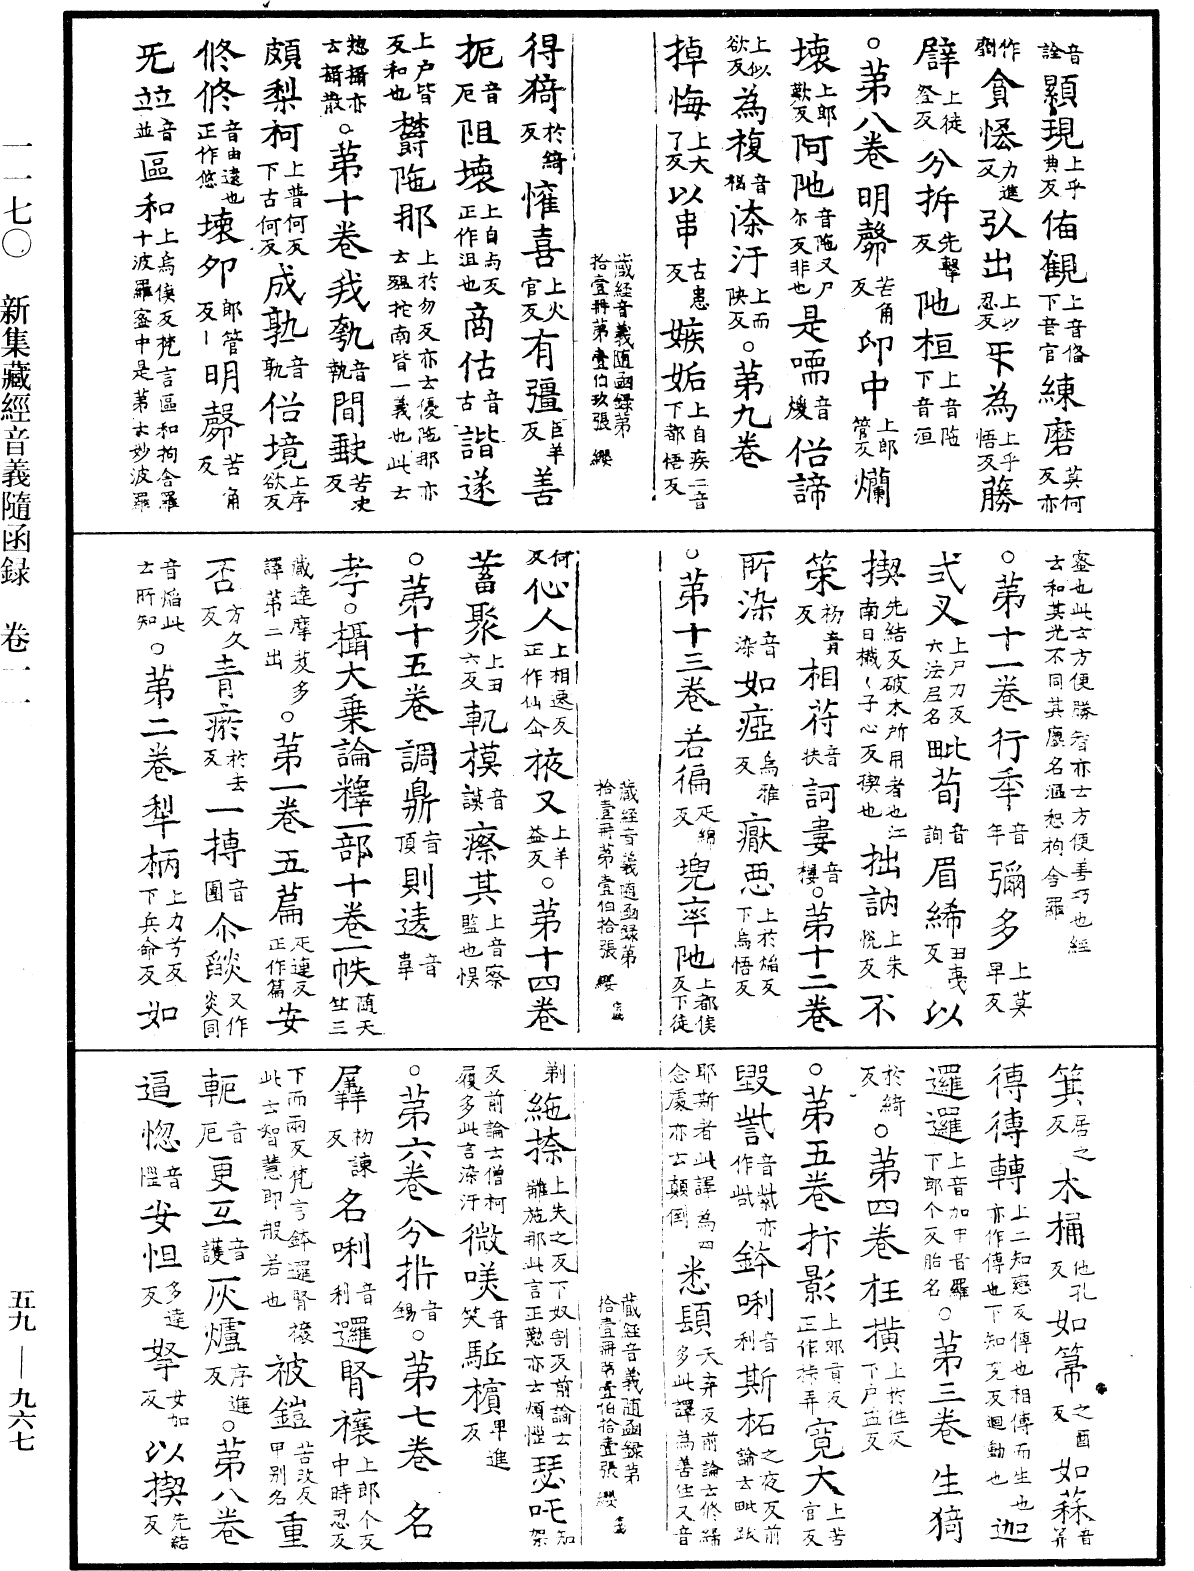 一一七〇　新集藏經音義隨函録　卷一一
五九—九六七
音詮顯現上乎典反侑觀上音俻下音官練磨莫何反亦
作劘貪恡力進反㢧出上以忍反㸦為上乎悟反藤
躃上徒登反分㭊先擊反阤桓上音陁下音洹
○第八卷明㲉苦角反卵中上郎管反爛
壞上郎歎反阿阤音陁又尸尓反非也是㬉音煖俗諦
上似欲反為複音福㴃汙上而陝反○第九卷
掉悔上大了反以串古患反嫉妬上自疾二音下都悟反
藏經音義隨函録第拾壹冊第壹伯玖張　纓
得猗於綺反懽喜上火官反有彊巨羊反善
扼音厄阻壞上自与反正作沮也商估音古諧遂
上戶皆反和也欝陁那上於勿反亦云優陁那亦云嗢拕南皆一義也此云
惣攝亦云攝散○第十卷我埶音執間㪇苦史反
頗梨柯上普何反下古何反成埶音執俗境上序欲反
修修音由遠也正作悠壞夘郎管反明㲉苦角反
旡竝音並區和上烏侯反梵言區和拘舍羅十波羅蜜中是第六妙波羅
蜜也此云方便勝智亦云方便善巧也經云和其光不同其塵名漚恕拘舍羅
○第十一卷行秊音年彌多上莫畢反
弍叉上尸力反六法尼名毗荀音詢眉絺丑夷反以
揳先結反破木所用者也江南曰櫼櫼子心反稧也拙訥上朱悅反不
筞初責反相苻音扶訶婁音樓○第十二卷
所染音染如瘂烏雅反癥𢙣上於焰反下烏悟反
○第十三卷若徧疋綿反堄率阤上都侯反下徒
藏經音義隨函録第拾壹冊第壹伯拾張　纓
何反仚人上相延反正作仙仚掖又上羊益反○第十四卷
蓄聚上丑六反軓模音謨瘵其上音察監也悮
○第十五卷調鼎音頂則逺音韋
孝○攝大乗論釋一部十卷一帙随天竺三
藏達摩芨多譯第二出○第一卷五篇疋連反正作篇安
否方久反青瘀於去反一摶音團尒𦦨又作炎同
音焰此云所知○第二卷犁柄上力兮反下兵命反如
箕居之反木桶他孔反如箒之酉反如蒜音筭
傅傅轉上二知戀反傳也相傳而生也亦作傳也下知兖反迴動也迦
邏邏上音加中音羅下郎个反胎名○第三卷生猗
於綺反○第四卷枉橫上於往反下戶孟反
○第五卷抃影上郎貢反正作㧜弄寛大上苦官反
毀訾音紫亦作呰鉢唎音利斯柘之夜反前論云毗跋
耶斯者此譯為四念處亦云顛倒悉閮天弃反前論云修綈多此譯為善住又音
剃絁捺上失之反下奴割反前論云離施那此言正懃亦云煩惱瑟吒知架
反前論云僧柯履多此言染汙微唉音笑駈擯畢進反
○第六卷分㭊音錫○第七卷名
羼初諫反名唎音利邏腎禳上郎个反中時忍反
下而兩反梵言鉢邏腎禳此云智慧即般若也被鎧苦改反甲别名重
軛音厄更互音護灰爐序進反○第八卷
逼惚音惱㚣怛多達反拏女加反以揳先結反